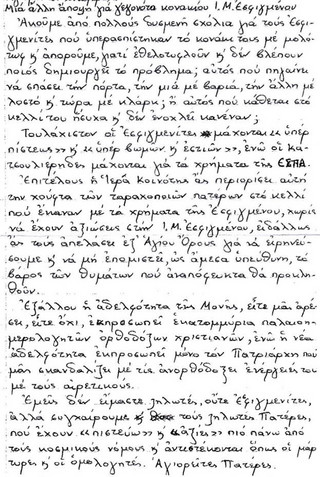 Μιά ἄλλη ἄποψη γιά γεγονότα κονακίου Ι.Μ.Ἐσφιγμένου
Ἀκοῦμε ἀπό πολλούς δυσμενῆ σχόλια γιά τούς Ἐσφι-
γμενίτες πού ὑπερασπίστηκαν τό κονάκι τους μέ μολό-
τωφ κ ἀποροῦμε, γιατί ἐθελοτυφλοῦν κ δέν βλέπουν
ποιός δημιουργεῖ τό πρόβλημα; αὐτός πού πηγαίνει
νά σπάσει τήν πόρτα, τήν μιά μέ βαριά, τήν ἄλλη μέ
λοστό κ τώρα μέ κλάρκ; ἤ αὐτός πού κάθεται στό
κελλί του ἥσυχα κ δέν ἐνοχλεῖ κανέναν;
Τουλάχιστον οἱ Ἐσφιγμενίτες μάχονται «ὑπέρ
πίστεως» κ «ὑπέρ βωμῶν κ ἑστιῶν», ἐνῶ οἱ κα-
τσουλιέρηδες μάχονται γιά τά χρήματα τῆς ΕΣΠΑ.
Ἐπιτέλους ἡ Ἱερά Κοινότης ἄς περιορίσει αὐτή
τήν χούφτα τῶν ταραχοποιῶν πατέρων στό κελλί
πού ἔκαναν μέ τά χρήματα τῆς Ἐσφιγμένου, χωρίς
νά ἔχουν ἀξιώσεις στήν Ι.Μ.Ἐσφιγμένου, εἰδάλλως
ἄς τούς ἀπελάσει ἐξ Ἁγίου Ὄρους γιά νά εἰρηνεύ-
σουμε κ νά μή ἐπωμιστεῖ, ὡς ἄμεσα ὑπεύθυνη, τό
βάρος τῶν θυμάτων πού ἀναπόφευκτα θά προκλη-
θοῦν.
Ἐξάλλου ἡ ἀδελφότητα τῆς Μονῆς, εἴτε μᾶς ἀρέ-
σει, εἴτε ὄχι, ἐκπροσωπεῖ ἑκατομμύρια παλαιοη-
μερολογητῶν ὀρθοδόξων χριστιανῶν, ἐνῶ ἡ νέα
ἀδελφότητα ἐκπροσωπεῖ μόνο τόν Πατριάρχη πού
μᾶς σκανδαλίζει μέ τίς ἀνορθόδοξες ἐνέργειές του
μέ τούς αἱρετικούς.
Ἐμεῖς δέν εἴμαστε ζηλωτές, οὔτε ἐσφιγμενίτες,
ἀλλά συγχαίρουμε τούς ζηλωτές Πατέρες,
πού ἔχουν «πιστεύω» κ «ἀξίες» πιό πάνω ἀπό
τούς κοσμικούς νόμους κ ἀντιστέκονται ὅπως οἱ μάρ
τυρες κ οἱ ὁμολογητές. Ἁγιορεῖτες Πατέρες.